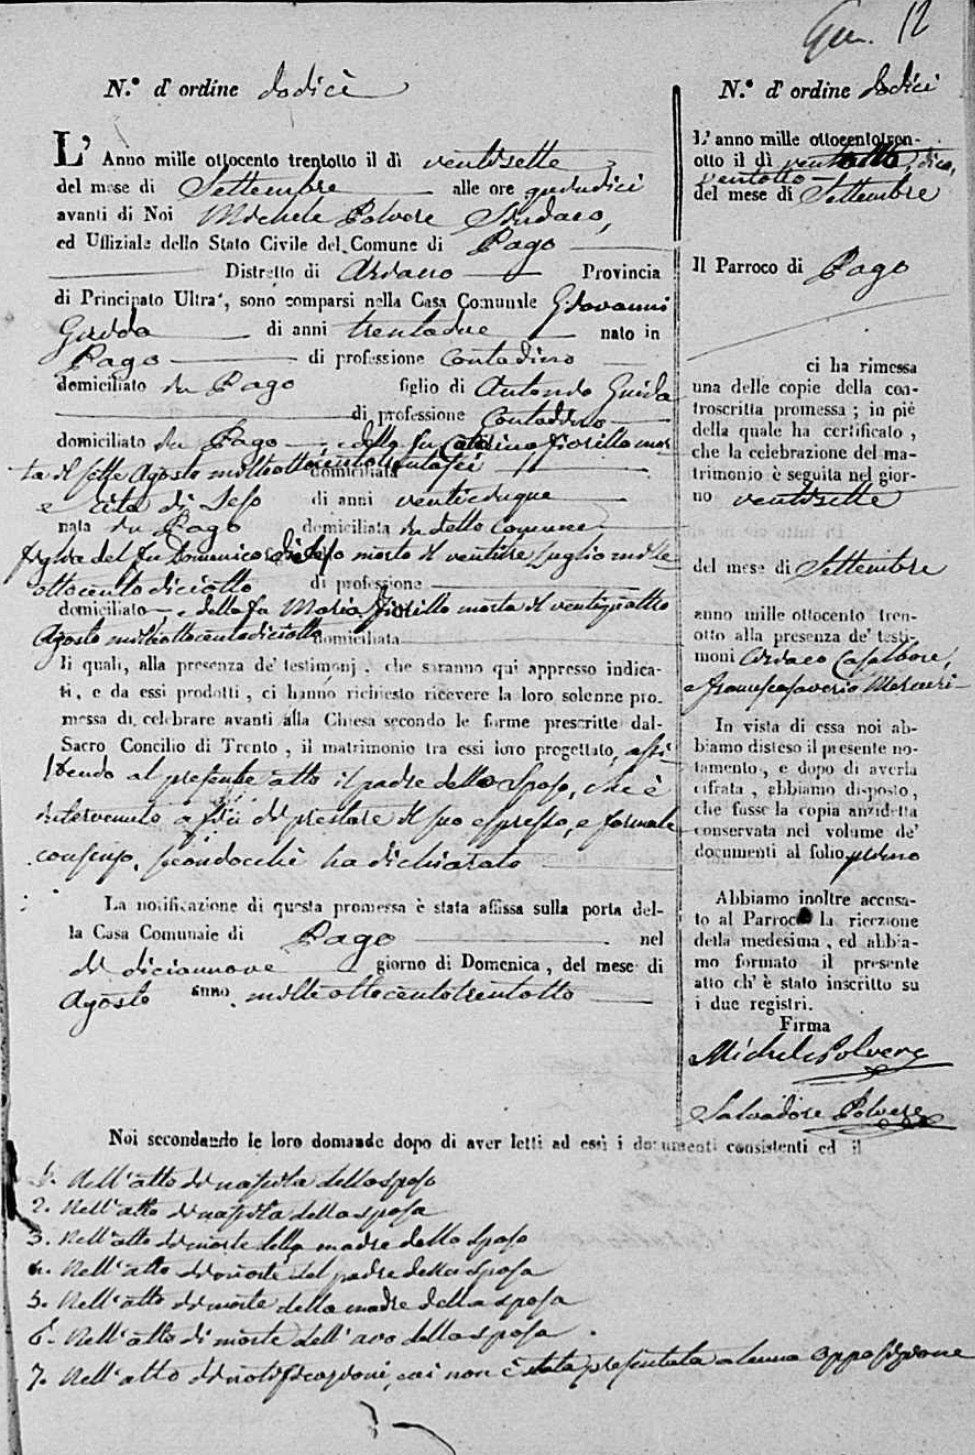 Gen. 12
N.º d' ordine dodici
L' Anno mille ottocento trentotto il dì ventisette
del mese di Settembre alle ore quindici
avanti di Noi Michele Polvere Sindaco,
ed Uffiziale dello Stato Civile del Comune di Pago
Distretto di Ariano Provincia
di Principato Ultra', sono comparsi nella Casa Comunale Giovanni
Guida di anni trentadue nato in
Pago di professione Contadino
domiciliato in Pago figlio di Antonio Guida
di professione Contadino
domiciliato in Pago e della fu Catarina Fiorillo mor
ta il sette Agosto milleottocentotrentasei domiciliata
e Rita di Leso di anni venticinque
nata in Pago domiciliata in detto Comune
figlia del fu Domenico di Leso morto il ventitre Luglio mille
ottocentodiciotto di professione
domiciliato e della fu Maria Fiorillo morta il ventiquattro
Agosto milleottocentodiciotto domiciliata
li quali, alla presenza de' testimonj, che saranno qui appresso indica-
ti, e da essi prodotti, ci hanno richiesto ricevere la loro solenne pro-
messa di celebrare avanti alla Chiesa secondo le forme prescritte dal-
Sacro Concilio di Trento, il matrimonio tra essi loro progettato, assi-
stendo al presente atto il padre dello Sposo, che è
intervenuto a fin di prestare il suo espresso, e formale
consenso, secondocchè ha dichiarato
La notificazione di questa promessa è stata affissa sulla porta del-
la Casa Comunale di Pago nel
dì diciannove giorno di Domenica, del mese di
Agosto anno milleottocentotrentotto
N.º d' ordine dodici
L' anno mille ottocentotren-
otto il dì dico,
ventotto
del mese di Settembre
Il Parroco di Pago
ci ha rimessa
una delle copie della con-
troscritta promessa; in piè
della quale ha certificato,
che la celebrazione del ma-
trimonio è seguita nel gior-
no ventisette
del mese di Settembre
anno mille ottocento tren-
otto alla presenza de' testi-
moni Casalbore,
e Francescosaverio Mercuri
In vista di essa noi ab-
biamo disteso il presente no-
tamento, e dopo di averla
cifrata, abbiamo disposto,
che fusse la copia anzidetta
conservata nel volume de'
documenti al folio primo
Abbiamo inoltre accusa-
to al Parroco la ricezione
della medesima, ed abbia-
mo formato il presente
atto ch' è stato inscritto su
i due registri.
Firma
Michele Polvere
Salvadore Polvere
Noi secondando le loro domande dopo di aver letti ad essi i documenti consistenti ed il
1. Nell'atto di nascita dello sposo
2. Nell'atto di nascita della sposa
3. Nell'atto di morte della madre dello sposo
4. Nell'atto di morte del padre della sposa
5. Nell'atto di morte della madre della sposa
6. Nell'atto di morte dell'avo della sposa
7. Nell'atto di notificazioni, cui non è stata presentata alcuna opposizione